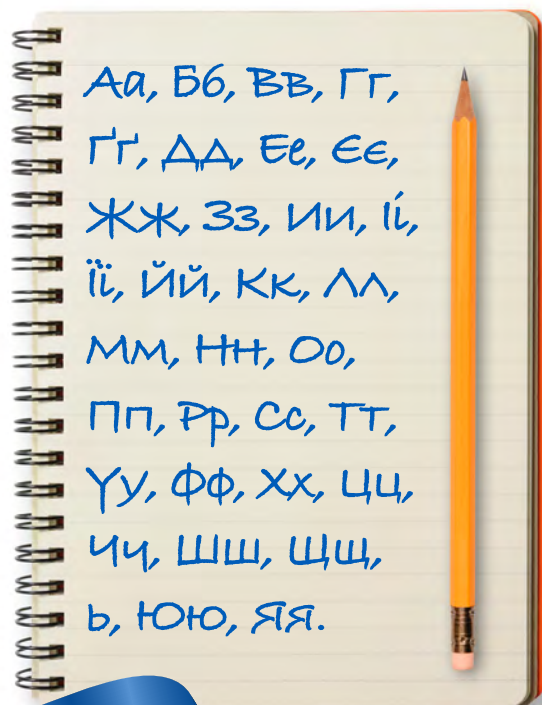 Аа, Бб, Вв, Гг,
Ґґ, Дд, Ее, Єє,
Жж, Зз, Ии, Іі,
Її, Йй, Кк, Лл,
Мм, Нн, Оо,
Пп, Рр, Сс, Тт,
Уу, Фф, Хх, Цц,
Чч, Шш, Щщ,
ь, Юю, Яя.